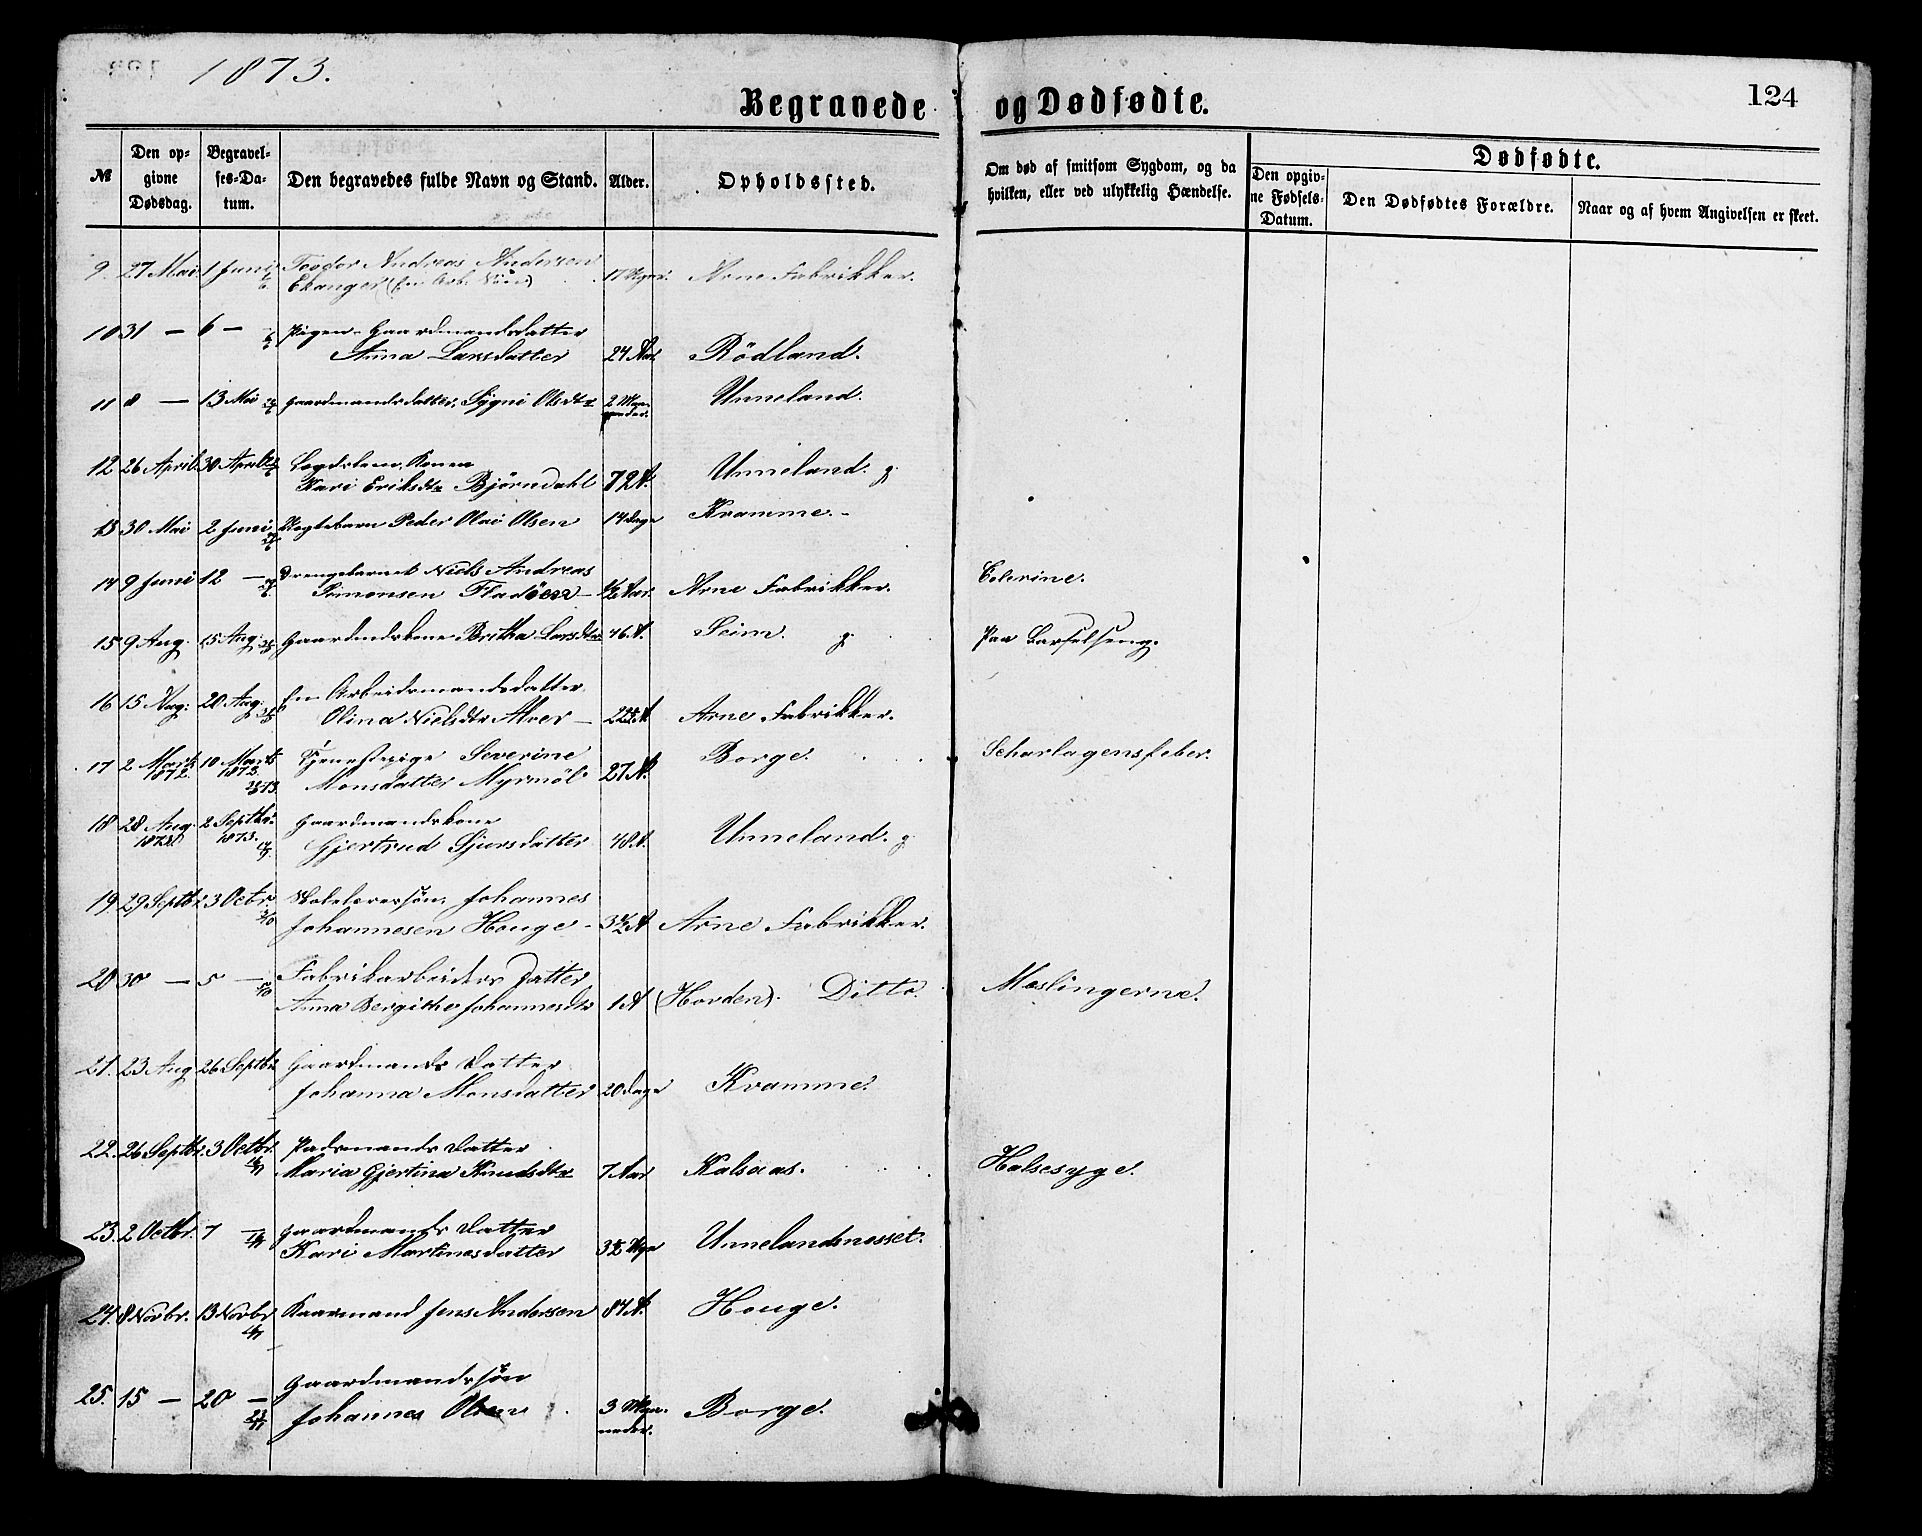 1873.
124
Begravede og Dødfødte.
№
Den op-
givne
Dødsdag.
Begravel-
ses-Da-
tum.
Den begravedes fulde Navn og Stand.
Alder.
Opholdssted.
Om død af smitsom Sygdom, og da
hvilken, eller ved ulykkelig Hændelse.
Dødfødte.
Den opgiv-
ne Fødsels-
Datum.
Den Dødfødtes Forældre.
Naar og af hvem Angivelsen er skeet.
9. 27 Mai 1 Juni Teodor Andreas Andersen
Ekanger (En Arb. Søn) 17 Uger. Arne Fabrikker.
10 31 — 6 — Pigen - Gaardmandsdatter
Anna Larsdatter 24 Aar Rödland.
11 8 — 13 Mai Gaardmandsdatter, Sygni Olsdtr 2 Maa-
neder. Unneland.
12 26 April 30 April Lægdslem, Konen
Kari Eriksdtr Björndahl 72 A. Unneland. g.
13 30 Mai 2 Juni Pigebarn Peder Olai Olsen 14 Dage Kramme.
14 9 Juni 12 — Drengebarnet Niels Andreas
Simonsen Fladöen — ½ Aar. Arne Fabrikker. Colerine.
15 9 Aug. 15 Aug. Gaardmdskone Britha Larsdtr 46 A. Seim. g. Paa Barselseng.
16 15 Aug. 20 Aug. En Arbeidsmandsdatter
Olina Nielsdtr Alver — A Arne Fabrikker.
17 2 Marts
1872. 10 Marts
1872. Tjenestepige Severine
Monsdatter Myrmöl 27 A. Borge. Scharlagensfeber.
18 28 Aug.
1873. 2 Septbr.
1873. Gaardmandskone
Gjertrud Sjursdatter 48 A. Unneland. g.
19. 29 Septbr. 3 Octbr. Skolelærersön, Johannes
Johannesen Houge - 3½ A Arne Fabrikker.
20 30 — 5 — Fabrikarbeiders Datter
Anna Bergithe Johannesdtr 1 A (Horden). Ditto. Mæslingerne.
21. 23 Aug 26 Septbr Gaardmands Datter
Johanna Monsdatter 20 Dage Kramme.
22. 26 Septbr. 3 Octbr. Pladsmands Datter
Maria Gjertina Knudsdtr 7 Aar Kalsaas. Halsesyge.
23. 2 Octbr. 7 — Gaardmands Datter
Kari Martinesdatter 3½ Uger Unnelandsnesset.
24. 8 Novbr. 13 Novbr Kaarmand Jens Andersen 84 A. Houge.
25. 15 — 20 — Gaardmandssön
Johannes Olsen 3 Maa-
neder. Borge.